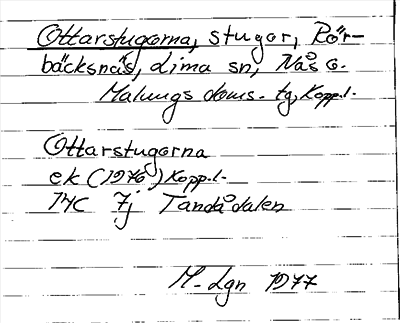 Ottarstugorna, stugor, Rör-
bäcksnäs, Lima sn, Nås o.
Malungs doms. tg, Kopp.l.
Ottarstugorna
ek (1976) Kopp.l.
14C 7j Tandådalen
M. Lgn 1977